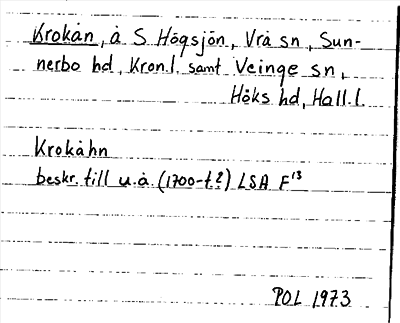 Krokån, å S Högsjön, Vrå sn, Sun-
nerbo hd, Kron.l. samt Veinge sn,
Höks hd, Hall.l.
Krokåhn
beskr. till u.å. (1700-t.?) LSA F¹³
POL 1973